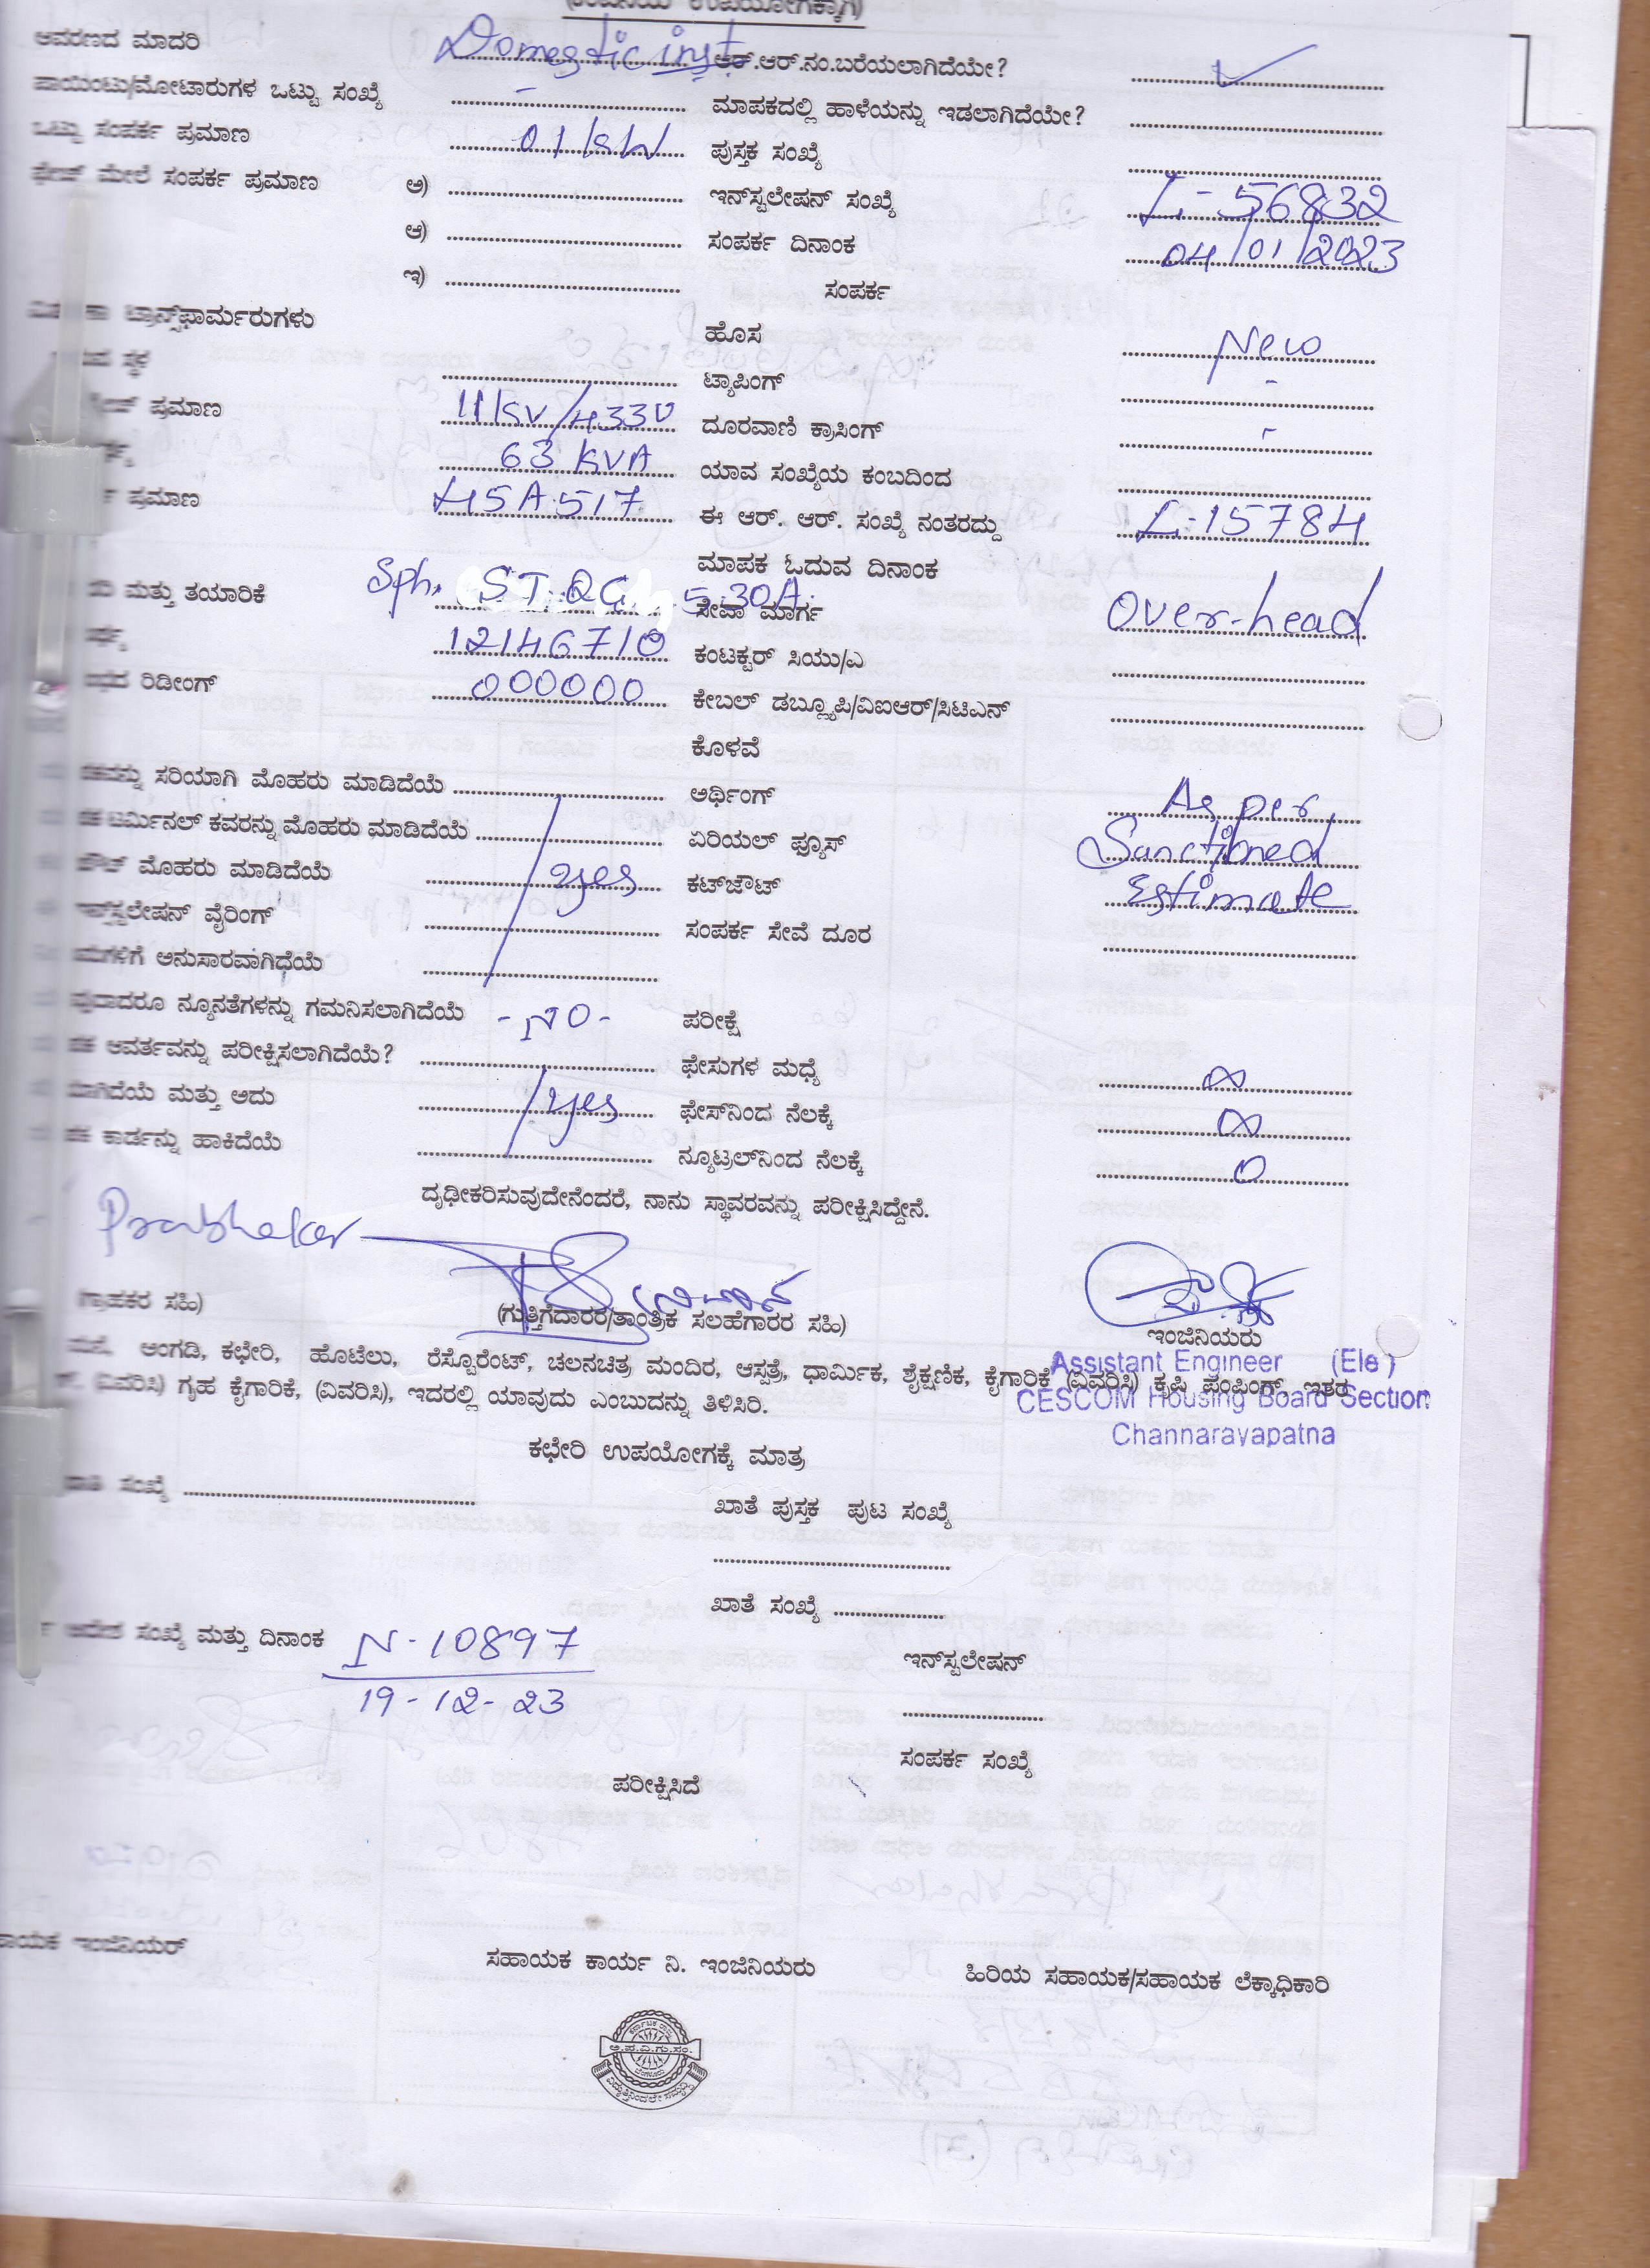 (ಕಂಪನಿಯ ಉಪಯೋಗಕ್ಕಾಗಿ)
ಆವರಣದ ಮಾದರಿ Domestic inst ಆರ್.ಆರ್.ನಂ.ಬರೆಯಲಾಗಿದೆಯೇ? ✓
ಪಾಯಿಂಟು/ಮೋಟಾರುಗಳ ಒಟ್ಟು ಸಂಖ್ಯೆ - ಮಾಪಕದಲ್ಲಿ ಹಾಳೆಯನ್ನು ಇಡಲಾಗಿದೆಯೇ?
ಒಟ್ಟು ಸಂಪರ್ಕ ಪ್ರಮಾಣ 01 KW ಪುಸ್ತಕ ಸಂಖ್ಯೆ
ಫೇಜ್ ಮೇಲೆ ಸಂಪರ್ಕ ಪ್ರಮಾಣ ಅ) ಇನ್‌ಸ್ಟಲೇಷನ್ ಸಂಖ್ಯೆ L-56832
ಆ) ಸಂಪರ್ಕ ದಿನಾಂಕ 04/01/2023
ಇ) ಸಂಪರ್ಕ
ಟ್ರಾನ್ಸ್‌ಫಾರ್ಮರುಗಳು ಹೊಸ New
ಸ್ಥಳ ಟ್ಯಾಪಿಂಗ್ -
ಪ್ರಮಾಣ 11KV/433V ದೂರವಾಣಿ ಕ್ರಾಸಿಂಗ್ -
63 KVA ಯಾವ ಸಂಖ್ಯೆಯ ಕಂಬದಿಂದ
ಪ್ರಮಾಣ HSA 517 ಈ ಆರ್. ಆರ್. ಸಂಖ್ಯೆ ನಂತರದ್ದು L-15784
ಮಾಪಕ ಓದುವ ದಿನಾಂಕ
ಮತ್ತು ತಯಾರಿಕೆ Sph. 5-30A. ಸೇವಾ ಮಾರ್ಗ Over-head
12146710 ಕಂಟಕ್ಟರ್ ಸಿಯು/ಎ
ರಿಡೀಂಗ್ 000000 ಕೇಬಲ್ ಡಬ್ಲ್ಯೂಪಿ/ವಿಐಆರ್/ಸಿಟಿಎನ್
ಕೊಳವೆ
ಸರಿಯಾಗಿ ಮೊಹರು ಮಾಡಿದೆಯೆ ಅರ್ಥಿಂಗ್ As per
ಟರ್ಮಿನಲ್ ಕವರನ್ನು ಮೊಹರು ಮಾಡಿದೆಯೆ ಏರಿಯಲ್ ಫ್ಯೂಸ್ Sanctioned
ಮೊಹರು ಮಾಡಿದೆಯೆ yes ಕಟ್‌ಜೌಟ್ Estimate
ಇನ್‌ಸ್ಟಲೇಷನ್ ವೈರಿಂಗ್ ಸಂಪರ್ಕ ಸೇವೆ ದೂರ
ಅನುಸಾರವಾಗಿಧೆಯೆ
ನ್ಯೂನತೆಗಳನ್ನು ಗಮನಿಸಲಾಗಿದೆಯೆ - NO - ಪರೀಕ್ಷೆ
ಆವರ್ತವನ್ನು ಪರೀಕ್ಷಿಸಲಾಗಿದೆಯೆ? ಫೇಸುಗಳ ಮಧ್ಯೆ ∞
ಮತ್ತು ಅದು yes ಫೇಸ್‌ನಿಂದ ನೆಲಕ್ಕೆ ∞
ಕಾರ್ಡನ್ನು ಹಾಕಿದೆಯೆ ನ್ಯೂಟ್ರಲ್‌ನಿಂದ ನೆಲಕ್ಕೆ 0
ದೃಢೀಕರಿಸುವುದೇನೆಂದರೆ, ನಾನು ಸ್ಥಾವರವನ್ನು ಪರೀಕ್ಷಿಸಿದ್ದೇನೆ.
Prabhakar
(ಗ್ರಾಹಕರ ಸಹಿ) (ಗುತ್ತಿಗೆದಾರರ/ತಾಂತ್ರಿಕ ಸಲಹೆಗಾರರ ಸಹಿ) ಇಂಜಿನಿಯರು
ಮನೆ, ಅಂಗಡಿ, ಕಛೇರಿ, ಹೊಟೆಲು, ರೆಸ್ಟೊರೆಂಟ್, ಚಲನಚಿತ್ರ ಮಂದಿರ, ಆಸ್ಪತ್ರೆ, ಧಾರ್ಮಿಕ, ಶೈಕ್ಷಣಿಕ, ಕೈಗಾರಿಕೆ (ವಿವರಿಸಿ) ಕೃಷಿ ಪಂಪಿಂಗ್, ಇತರ
(ವಿವರಿಸಿ) ಗೃಹ ಕೈಗಾರಿಕೆ, (ವಿವರಿಸಿ), ಇದರಲ್ಲಿ ಯಾವುದು ಎಂಬುದನ್ನು ತಿಳಿಸಿರಿ.
Assistant Engineer (Ele)
CESCOM Housing Board Section
Channarayapatna
ಕಛೇರಿ ಉಪಯೋಗಕ್ಕೆ ಮಾತ್ರ
ಸಂಖ್ಯೆ ಖಾತೆ ಪುಸ್ತಕ ಪುಟ ಸಂಖ್ಯೆ
ಖಾತೆ ಸಂಖ್ಯೆ
ಆದೇಶ ಸಂಖ್ಯೆ ಮತ್ತು ದಿನಾಂಕ N-10897
19-12-23
ಇನ್‌ಸ್ಟಲೇಷನ್
ಸಂಪರ್ಕ ಸಂಖ್ಯೆ
ಪರೀಕ್ಷಿಸಿದೆ
ಇಂಜಿನಿಯರ್ ಸಹಾಯಕ ಕಾರ್ಯ ನಿ. ಇಂಜಿನಿಯರು ಹಿರಿಯ ಸಹಾಯಕ/ಸಹಾಯಕ ಲೆಕ್ಕಾಧಿಕಾರಿ